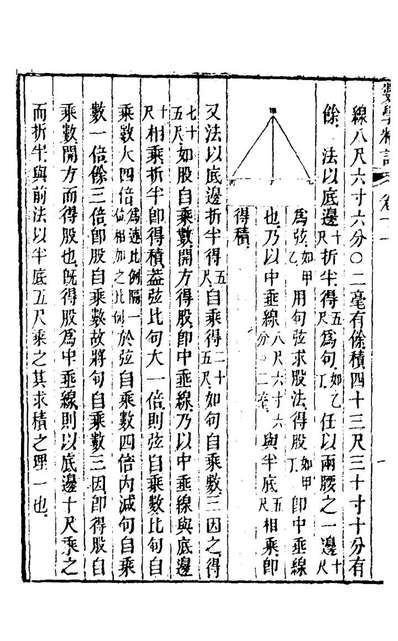 數學精詳 卷十一
線八尺六寸六分〇二毫有餘積四十三尺三十寸十分有
餘 法以底邊十尺折半得五尺爲句如乙丁任以兩腰之一邊十尺
爲弦如甲乙用句弦求股法得股如甲丁卽中垂線
也乃以中垂線八尺六寸六分〇二毫與半底五尺相乘卽
得積
又法以底邊折半得五尺自乘得二十五尺如句自乘數三因之得
七十五尺如股自乘數開方得股卽中垂線乃以中垂線與底邊
十尺相乘折半卽得積蓋弦比句大一倍則弦自乘數比句自
乘數大四倍爲連比例隔一位相加之比例於弦自乘數四倍內減句自乘
數一倍餘三倍卽股自乘數故將句自乘數三因卽得股自
乘數開方而得股也旣得股爲中垂線則以底邊十尺乘之
而折半與前法以半底五尺乘之其求積之理一也